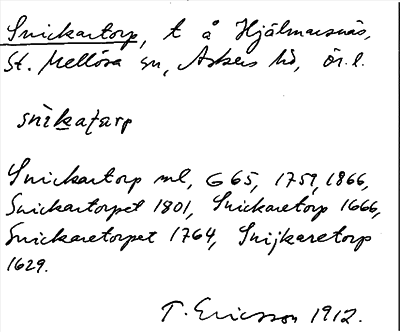 Snickartorp, t å Hjälmarsnäs,
St. Mellösa sn, Askers hd, ör. l.
snìkatarp
Snickartorp ml, G 65, 1759, 1866,
Snickartorpet 1801, Snickaretorp 1666,
Snickaretorpet 1764, Snijkaretorp
1629.
T. Ericsson 1912.